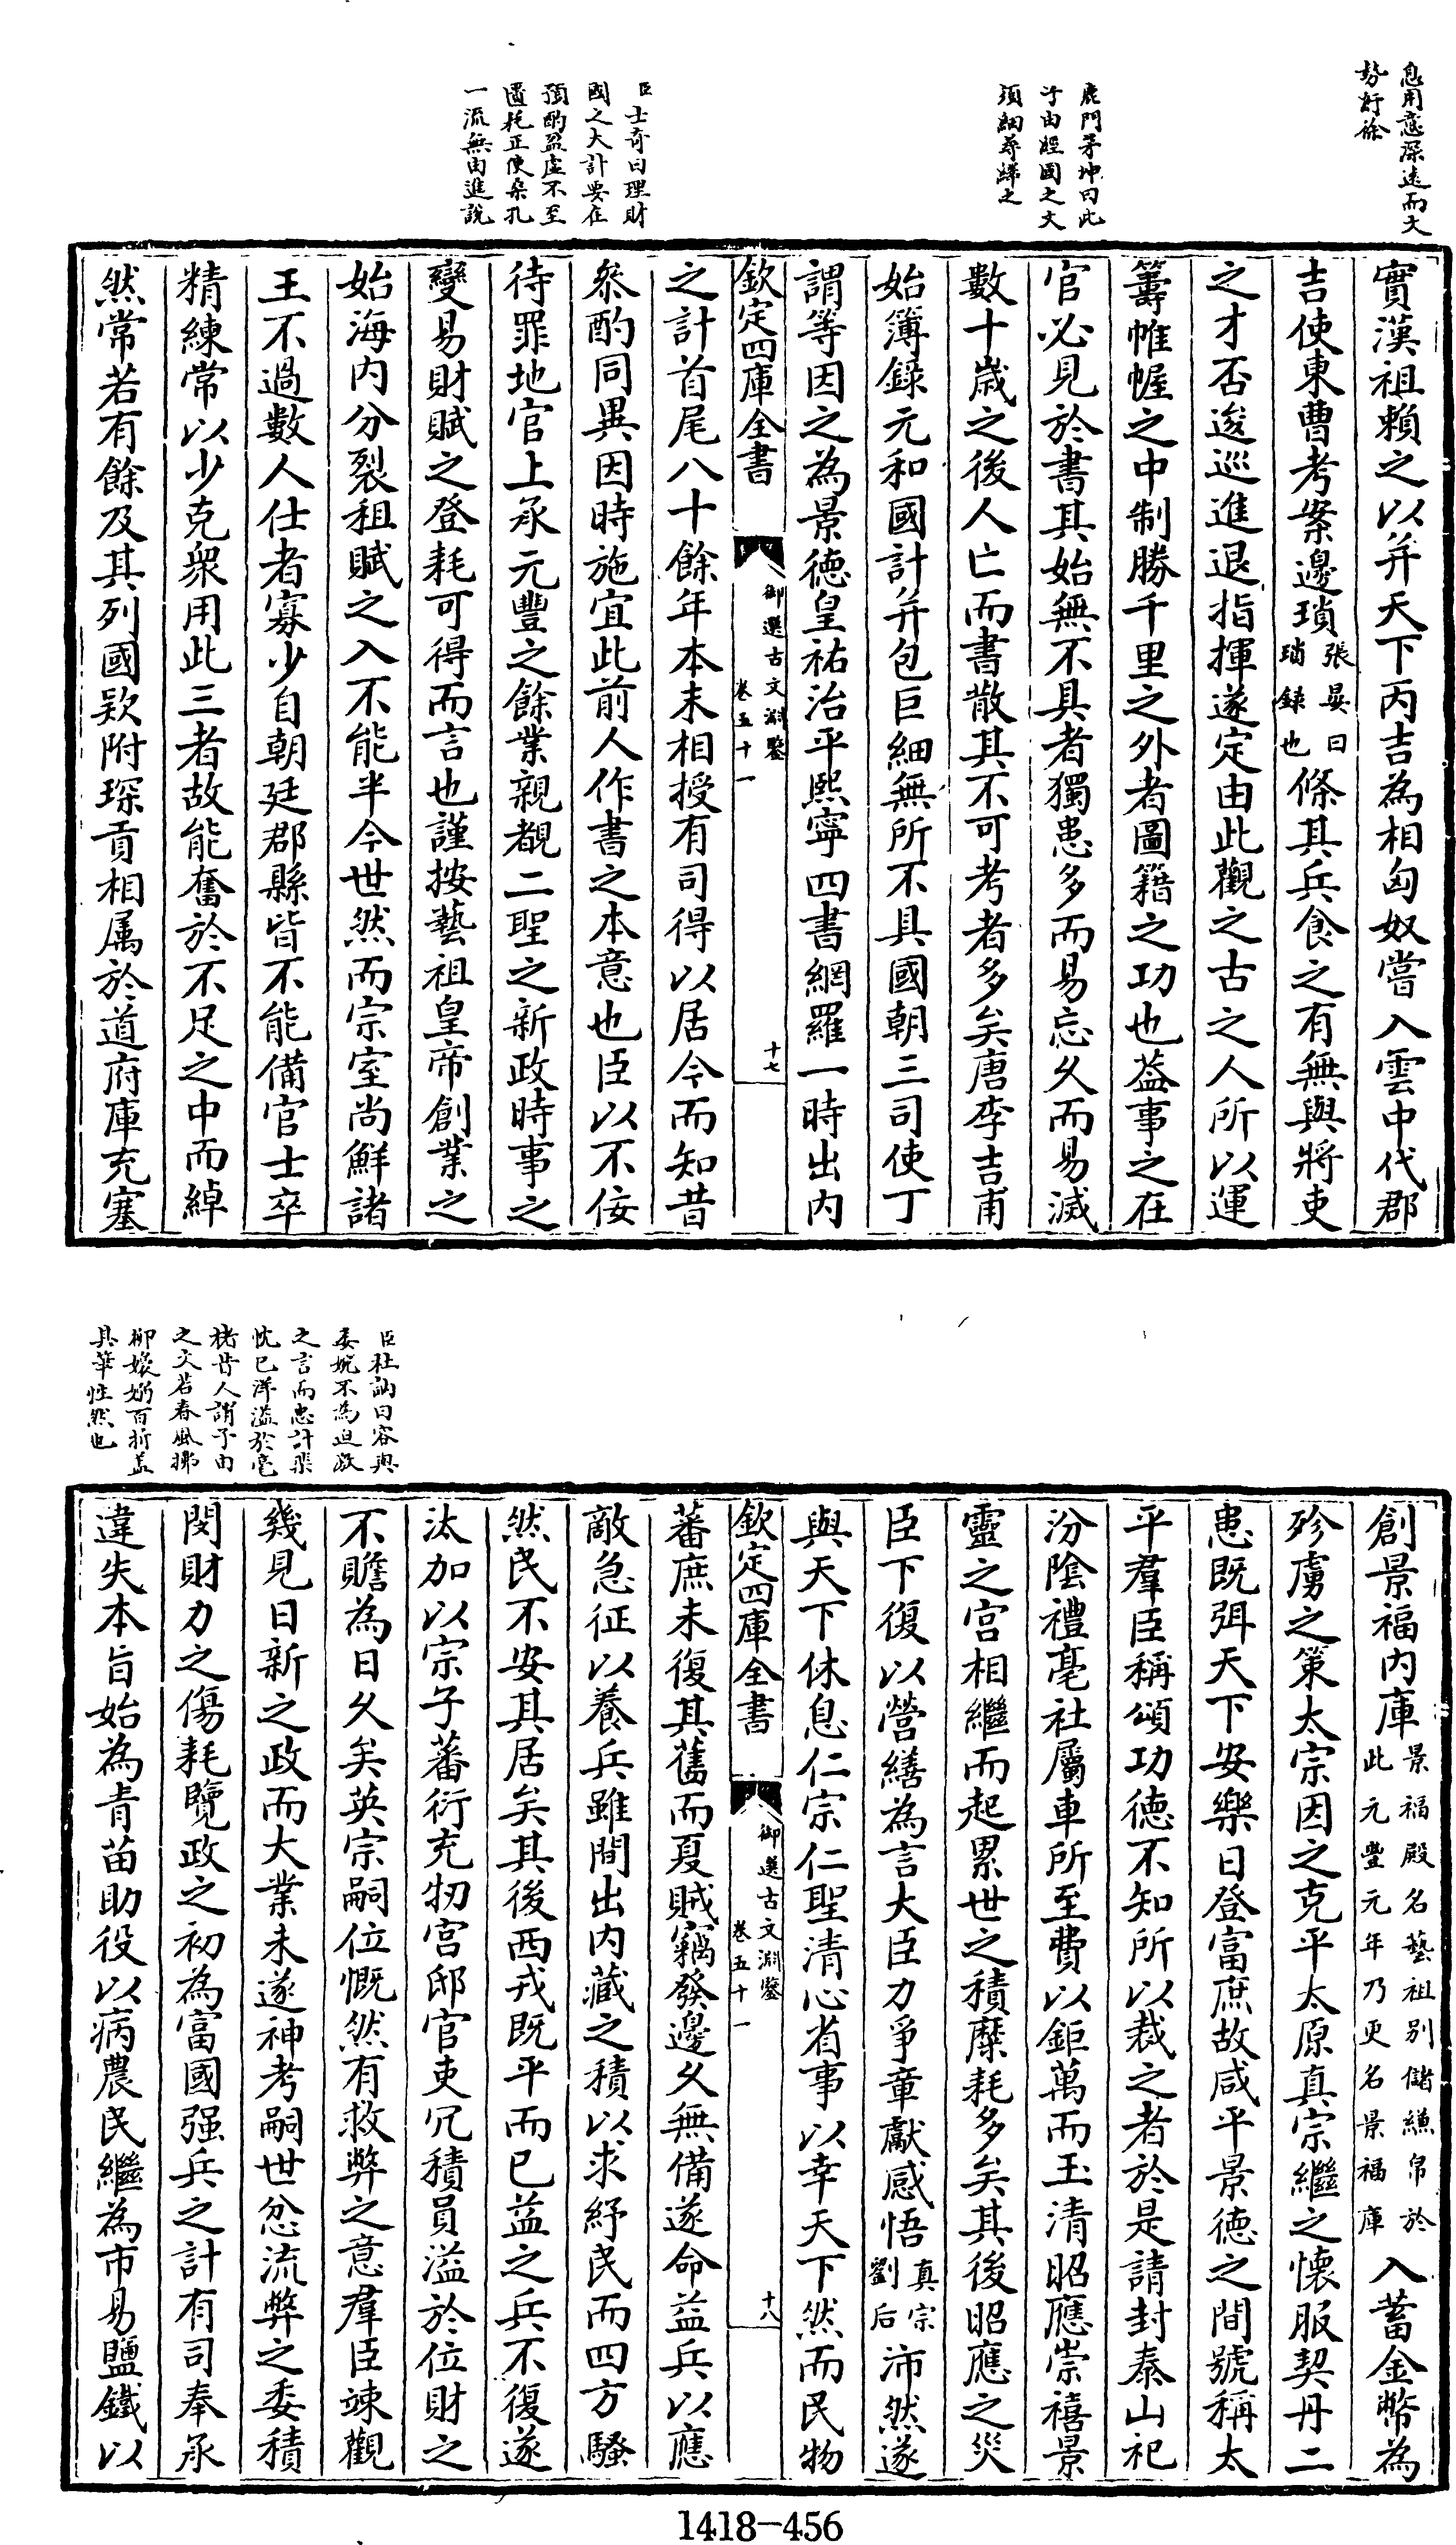 息用意深遠而文
勢紆徐
鹿門茅坤曰此
子由經國之文
須細尋繹之
臣士奇曰理財
國之大計要在
預酌盈虛不至
匱耗正使桑孔
一流無由進說
實漢祖賴之以并天下丙吉為相匈奴嘗入雲中代郡
吉使東曹考案邊瑣張晏曰瑣錄也條其兵食之有無與將吏
之才否逡巡進退指揮遂定由此觀之古之人所以運
籌帷幄之中制勝千里之外者圖籍之功也蓋事之在
官必見於書其始無不具者獨患多而易忘久而易滅
數十歲之後人亡而書散其不可考者多矣唐李吉甫
始簿錄元和國計并包巨細無所不具國朝三司使丁
謂等因之為景德皇祐治平熙寧四書網羅一時出內
欽定四庫全書 御選古文淵鑒 卷五十一 十七
之計首尾八十餘年本末相授有司得以居今而知昔
叅酌同異因時施宜此前人作書之本意也臣以不佞
待罪地官上承元豐之餘業親覩二聖之新政時事之
變易財賦之登耗可得而言也謹按藝祖皇帝創業之
始海內分裂租賦之入不能半今世然而宗室尚鮮諸
王不過數人仕者寡少自朝廷郡縣皆不能備官士卒
精練常以少克衆用此三者故能奮於不足之中而綽
然常若有餘及其列國欵附琛貢相属於道府庫充塞
臣杜訥曰容與
委婉不為迫激
之言而忠計悃
忱已洋溢於毫
楮昔人謂子由
之文若春風拂
柳嫋嫋百折蓋
其筆性然也
創景福內庫景福殿名藝祖別儲縑帛於此元豐元年乃更名景福庫入蓄金幣為
殄虜之策太宗因之克平太原真宗繼之懷服契丹二
患既弭天下安樂日登富庶故咸平景德之間號稱太
平羣臣稱頌功德不知所以裁之者於是請封泰山祀
汾陰禮亳社屬車所至費以鉅萬而玉清昭應崇禧景
靈之宮相繼而起累世之積糜耗多矣其後昭應之災
臣下復以營繕為言大臣力爭章獻感悟真宗劉后沛然遂
與天下休息仁宗仁聖清心省事以幸天下然而民物
欽定四庫全書 御選古文淵鑒 卷五十一 十八
蕃庶未復其舊而夏賊竊發邊久無備遂命益兵以應
敵急征以養兵雖間出內藏之積以求紓民而四方騷
然民不安其居矣其後西戎既平而已益之兵不復遂
汰加以宗子蕃衍充牣宮邸官吏冗積員溢於位財之
不贍為日久矣英宗嗣位慨然有救弊之意羣臣竦觀
幾見日新之政而大業未遂神考嗣世忿流弊之委積
閔財力之傷耗覽政之初為富國强兵之計有司奉承
違失本旨始為青苗助役以病農民繼為市易鹽鐵以
1418-456